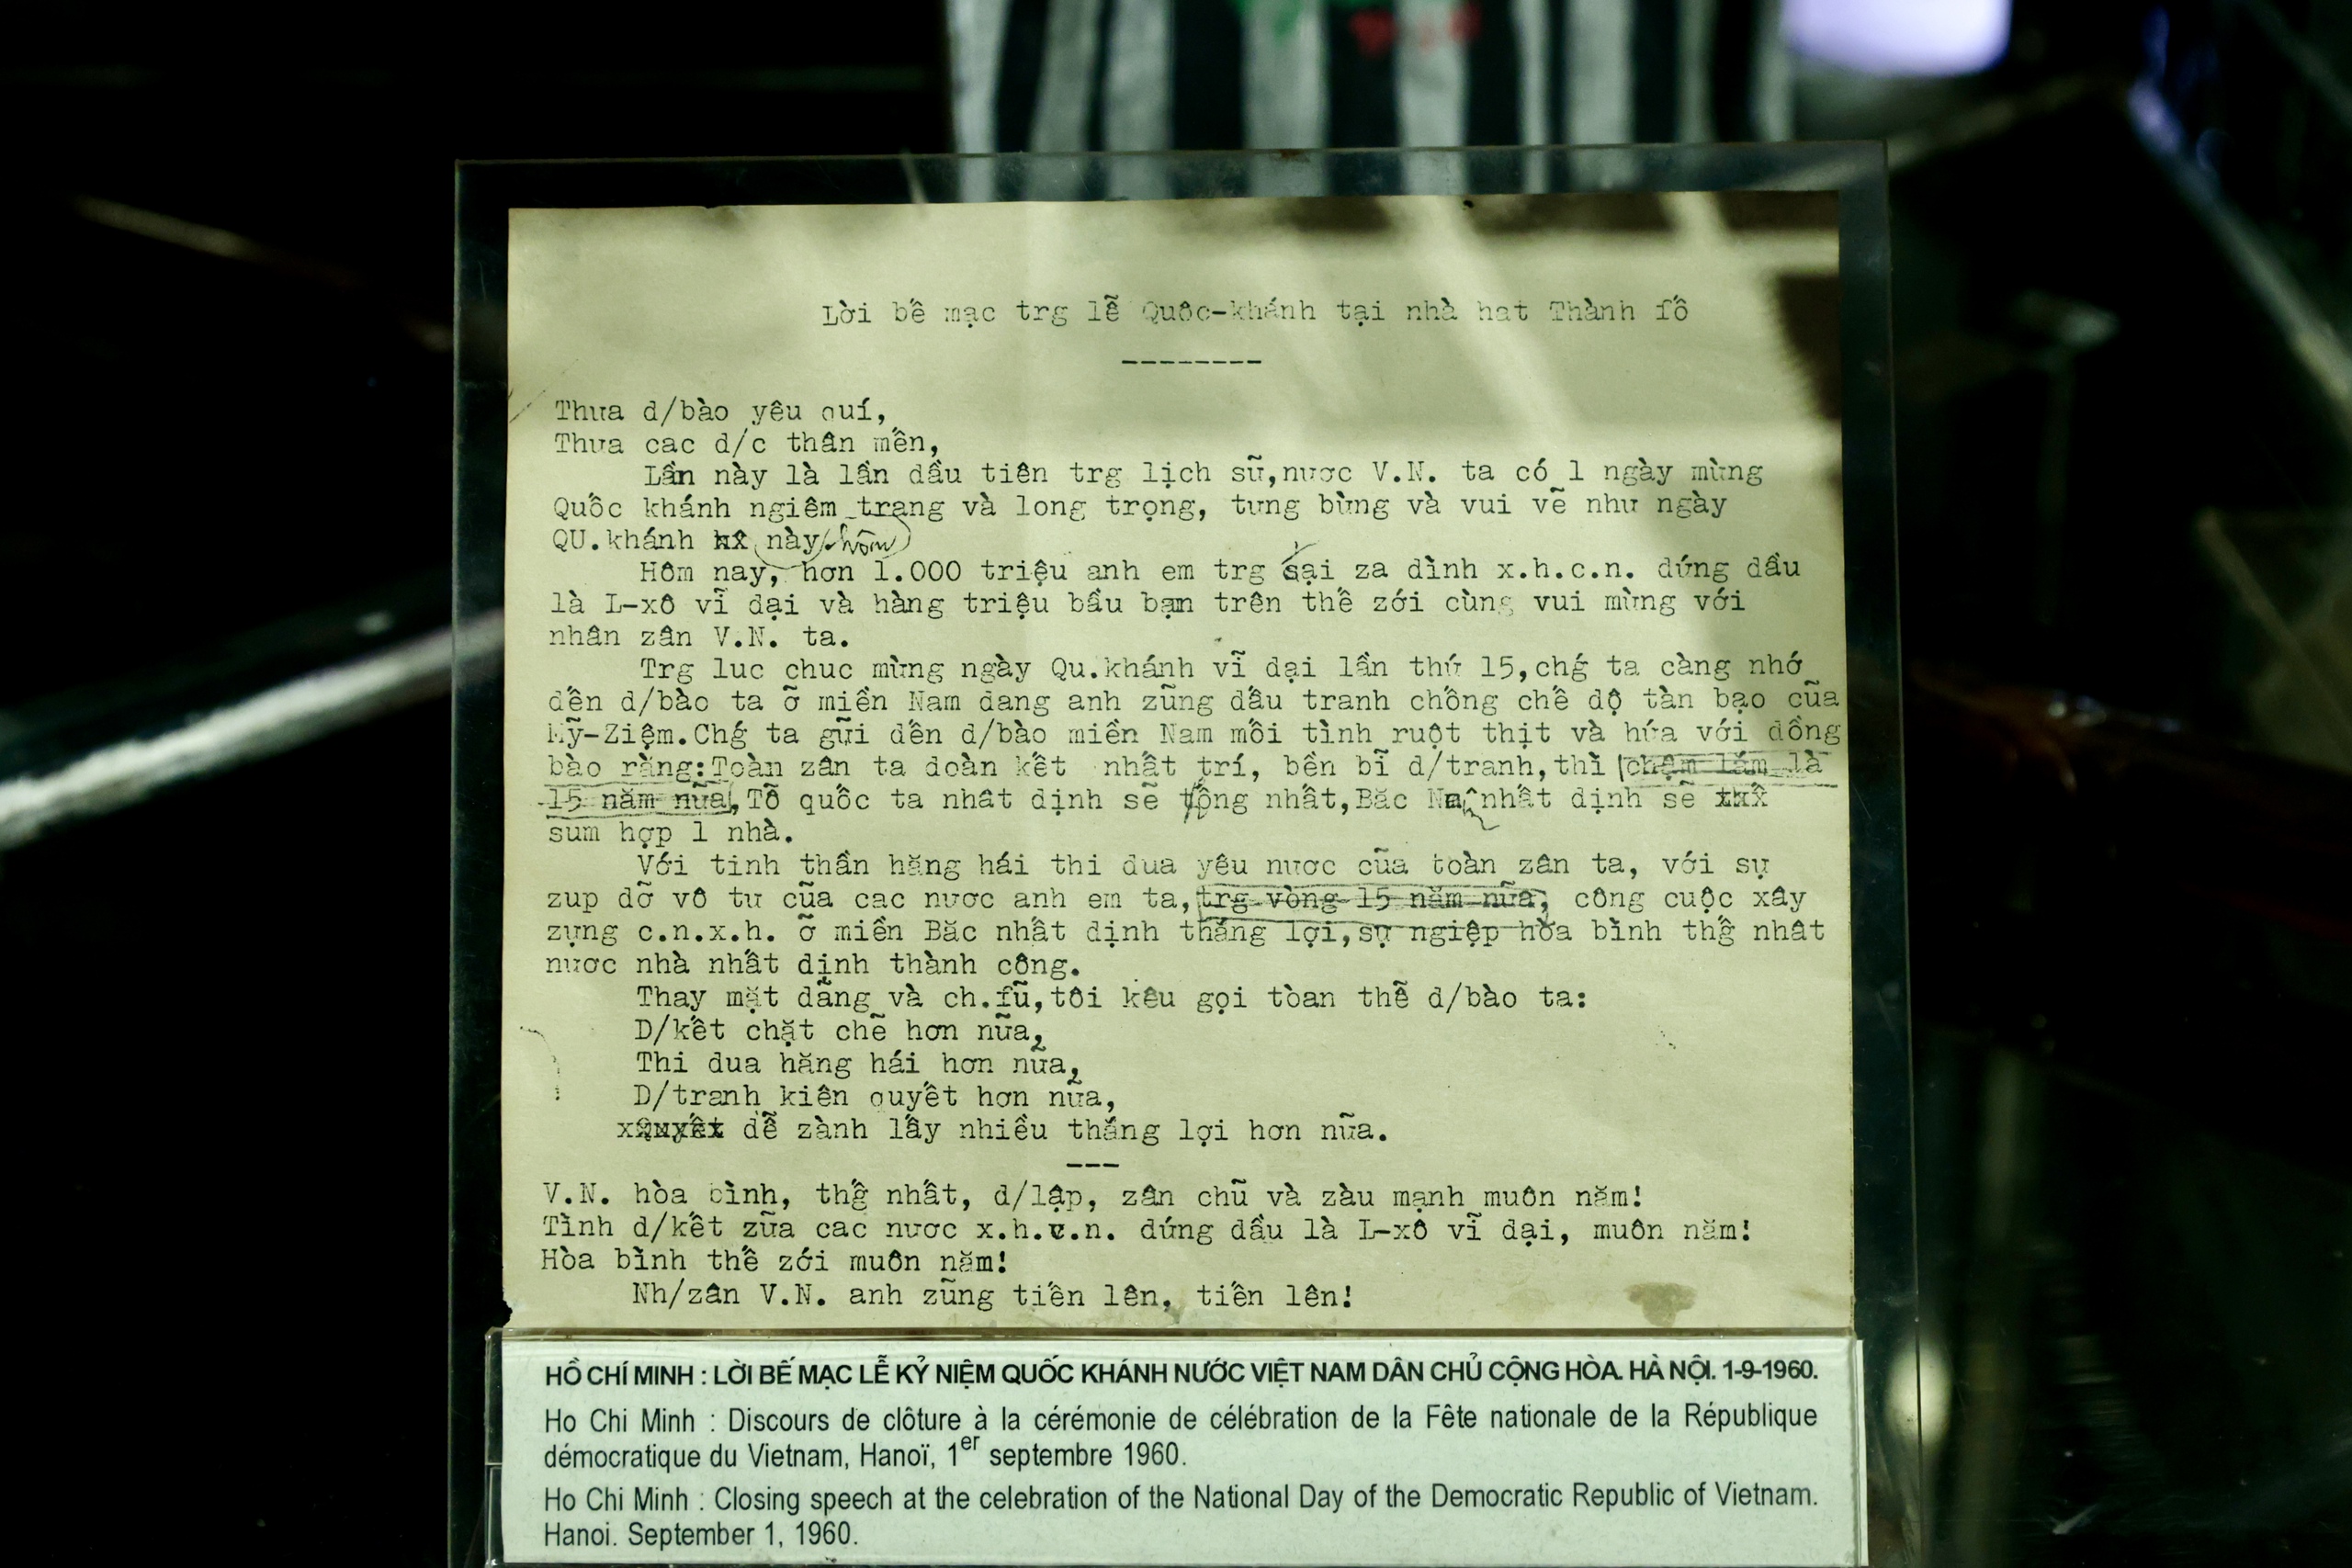 Lời bế mạc trg lễ Quôc-khánh tại nhà hat Thành fố
--------
Thưa d/bào yêu quí,
Thưa cac d/c thân mến,
Lần này là lần dầu tiên trg lịch sũ,nươc V.N. ta có 1 ngày mừng
Quốc khánh ngiêm trang và long trọng, tưng bừng và vui vẽ như ngày
QU.khánh này hôm
Hôm nay, hơn 1.000 triệu anh em trg đại za dình x.h.c.n. dứng dầu
là L-xô vĩ dại và hàng triệu bầu bạn trên thế zới cùng vui mừng với
nhân zân V.N. ta.
Trg luc chuc mừng ngày Qu.khánh vĩ dại lần thứ 15,chǵ ta càng nhớ
dến d/bào ta ỡ miền Nam dang anh zũng dấu tranh chống chế dộ tàn bạo cũa
Mỹ-Ziệm.Chǵ ta gữi dến d/bào miền Nam mối tình ruột thịt và hứa với dồng
bào rằng:Toàn zân ta doàn kết nhất trí, bền bĩ d/tranh,thì chậm lắm là
15 năm nữa,Tỗ quốc ta nhât dịnh sẽ thống nhất,Băc Nam nhất dịnh sẽ
sum hợp 1 nhà.
Với tinh thần hăng hái thi dua yêu nươc cũa toàn zân ta, với sự
zup dỡ vô tư cũa cac nươc anh em ta,trg vòng 15 năm nữa, công cuộc xây
zựng c.n.x.h. ỡ miền Băc nhất dịnh thắng lợi,sự ngiệp hòa bình thg̃ nhât
nươc nhà nhất dịnh thành công.
Thay mặt dãng và ch.fũ,tôi kêu gọi tòan thễ d/bào ta:
D/kết chặt chẽ hơn nữa,
Thi dua hăng hái hơn nữa,
D/tranh kiên quyết hơn nữa,
Quyết dễ zành lấy nhiều thắng lợi hơn nữa.
---
V.N. hòa bình, thǵ nhất, d/lập, zân chũ và zàu mạnh muôn năm!
Tình d/kết zũa cac nươc x.h.c.n. dứng dầu là L-xô vĩ dại, muôn năm!
Hòa bình thế zới muôn năm!
Nh/zân V.N. anh zũng tiến lên, tiến lên!
HỒ CHÍ MINH : LỜI BẾ MẠC LỄ KỶ NIỆM QUỐC KHÁNH NƯỚC VIỆT NAM DÂN CHỦ CỘNG HÒA. HÀ NỘI. 1-9-1960.
Ho Chi Minh : Discours de clôture à la cérémonie de célébration de la Fête nationale de la République
démocratique du Vietnam, Hanoï, 1er septembre 1960.
Ho Chi Minh : Closing speech at the celebration of the National Day of the Democratic Republic of Vietnam.
Hanoi. September 1, 1960.